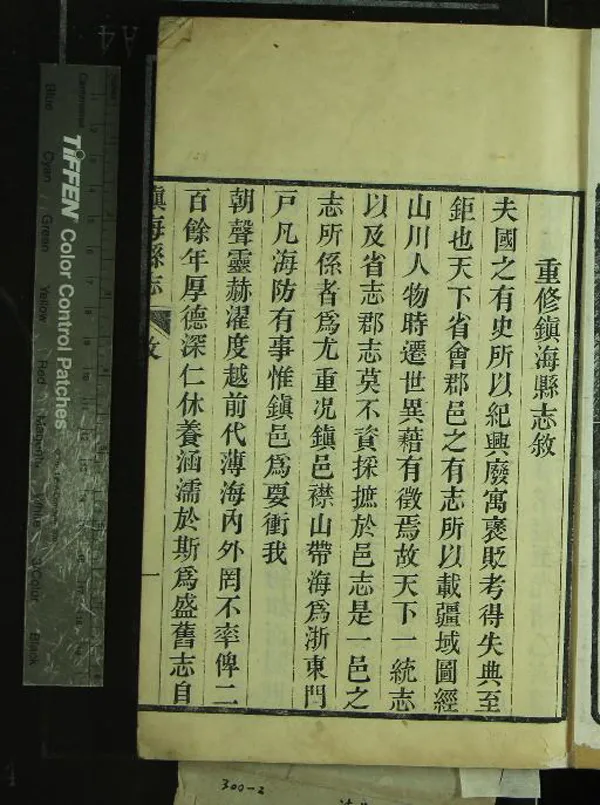 重修鎮海縣志敘
夫國之有史所以紀興廢寓褒貶考得失典至
鉅也天下省會郡邑之有志所以載疆域圖經
山川人物時遷世異藉有徵焉故天下一統志
以及省志郡志莫不資採摭於邑志是一邑之
志所係者爲尤重况鎮邑襟山帶海爲浙東門
戸凡海防有事惟鎮邑爲要衝我
朝聲靈赫濯度越前代薄海內外罔不率俾二
百餘年厚德深仁休養涵濡於斯爲盛舊志自
鎮海縣志
敘
一
TIFFEN Color Control Patches
Blue
Cyan
Green
Yellow
Red
Magenta
White
3/Color
Black
A4
300-2